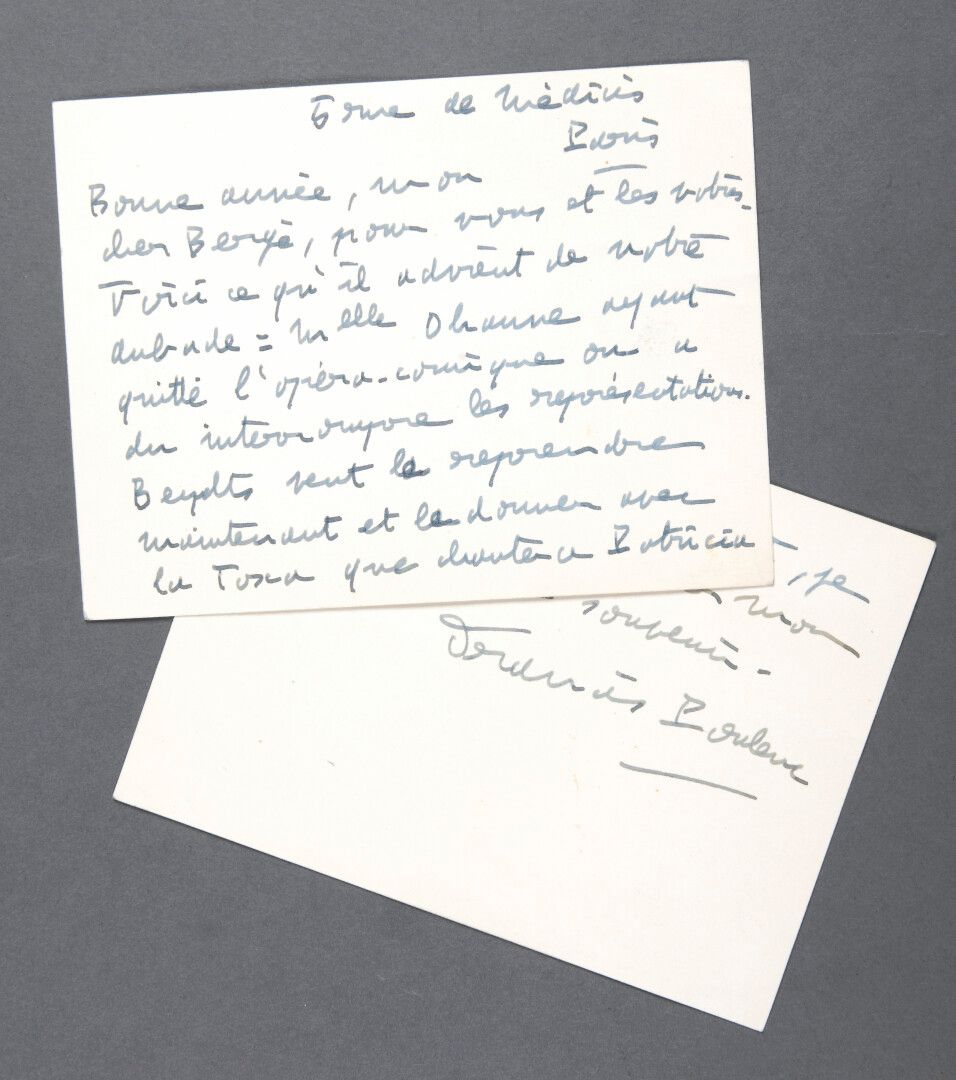 5 rue de Médicis
Paris
Bonne année, mon
cher Bergé, pour vous et les vôtres.
Voici ce qu'il advient de notre
aubade = Melle Dhanne ayant
quitté l'opéra-comique on a
du interrompre les représentations.
Beydts veut le reprendre
maintenant et le donner avec
la Tosca que chantera Patricia
, je
mon
souvenir.
Francis Poulenc